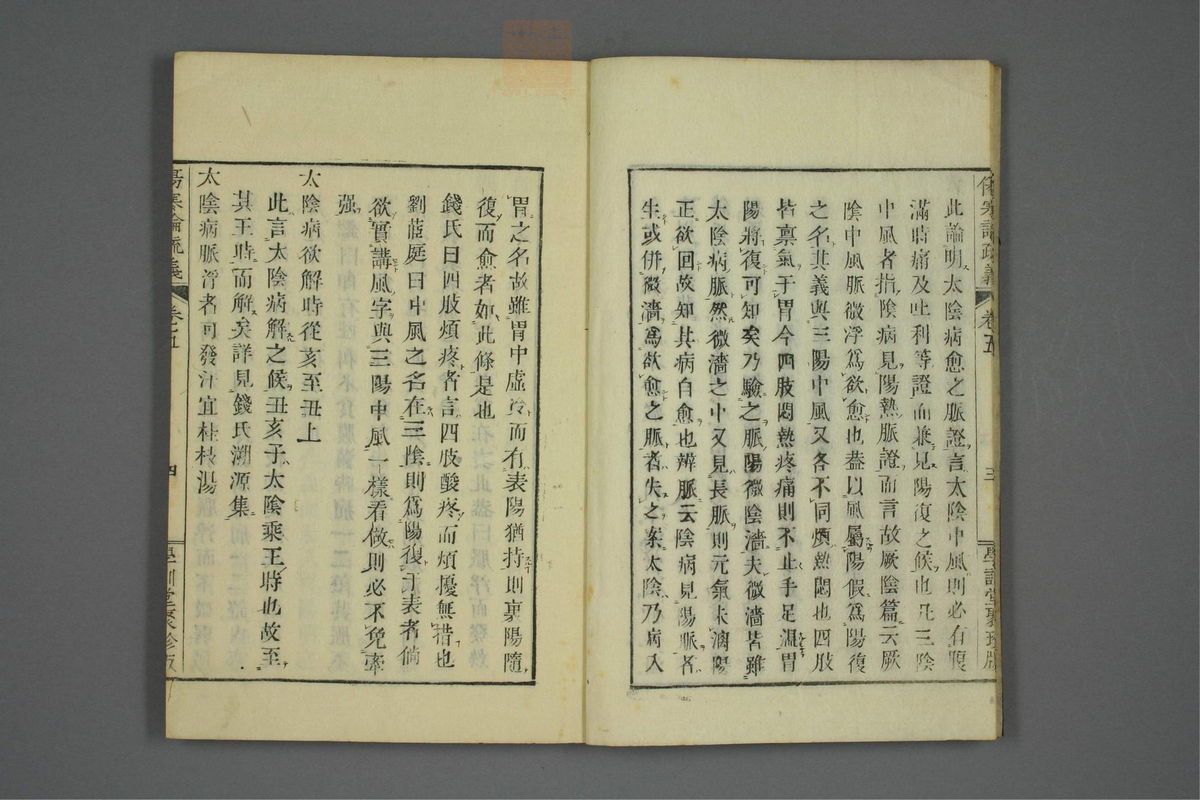 傷寒論疏義
卷五
三
學訓堂聚珍版
此論明太陰病愈之脈證言太陰中風則必有腹
滿時痛及吐利等證而兼見陽復之候也凡三陰
中風者指陰病見陽熱脈證而言故厥陰篇云厥
陰中風脈微浮爲欲愈也蓋以風屬陽假爲陽復
之名其義與三陽中風又各不同煩熱悶也四肢
皆稟氣于胃今四肢悶熱疼痛則不止手足溫胃
陽將復可知矣乃驗之脈陽微陰濇夫微濇皆雖
太陰病脈然微濇之中又見長脈則元氣未漓陽
正欲回故知其病自愈也辨脈云陰病見陽脈者
生或併微濇爲欲愈之脈者失之案太陰乃病入
胃之名故雖胃中虛冷而有表陽猶持則裏陽隨
復而愈者如此條是也
錢氏曰四肢煩疼者言四肢酸疼而煩擾無措也
劉茝庭曰中風之名在三陰則爲陽復于表者倘
欲實講風字與三陽中風一樣看做則必不免牽
强
太陰病欲解時從亥至丑上
此言太陰病解之候丑亥子太陰乘王時也故至
其王時而解矣詳見錢氏溯源集
太陰病脈浮者可發汗宜桂枝湯
傷寒論疏義
卷五
四
學訓堂聚珍版